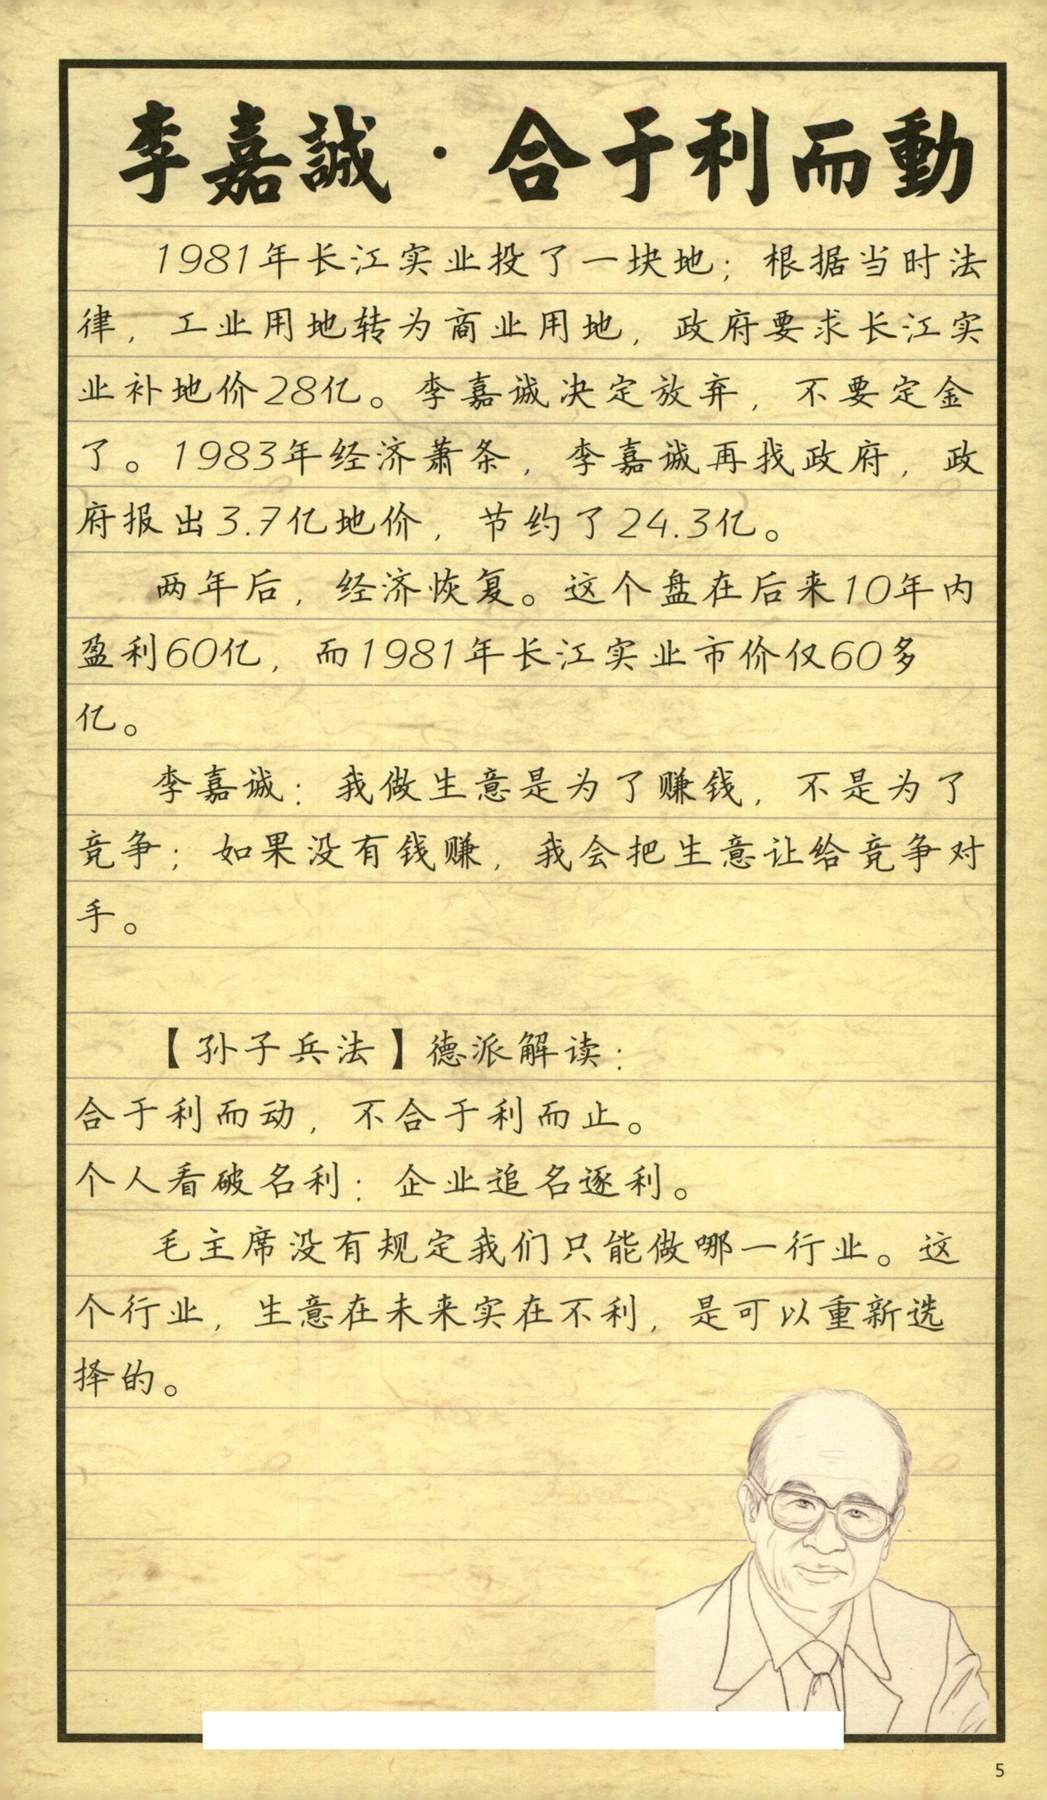 李嘉誠·合于利而動
1981年长江实业投了一块地；根据当时法
律，工业用地转为商业用地，政府要求长江实
业补地价28亿。李嘉诚决定放弃，不要定金
了。1983年经济萧条，李嘉诚再找政府，政
府报出3.7亿地价，节约了24.3亿。
两年后，经济恢复。这个盘在后来10年内
盈利60亿，而1981年长江实业市价仅60多
亿。
李嘉诚：我做生意是为了赚钱，不是为了
竞争；如果没有钱赚，我会把生意让给竞争对
手。
【孙子兵法】德派解读：
合于利而动，不合于利而止。
个人看破名利：企业追名逐利。
毛主席没有规定我们只能做哪一行业。这
个行业，生意在未来实在不利，是可以重新选
择的。
5